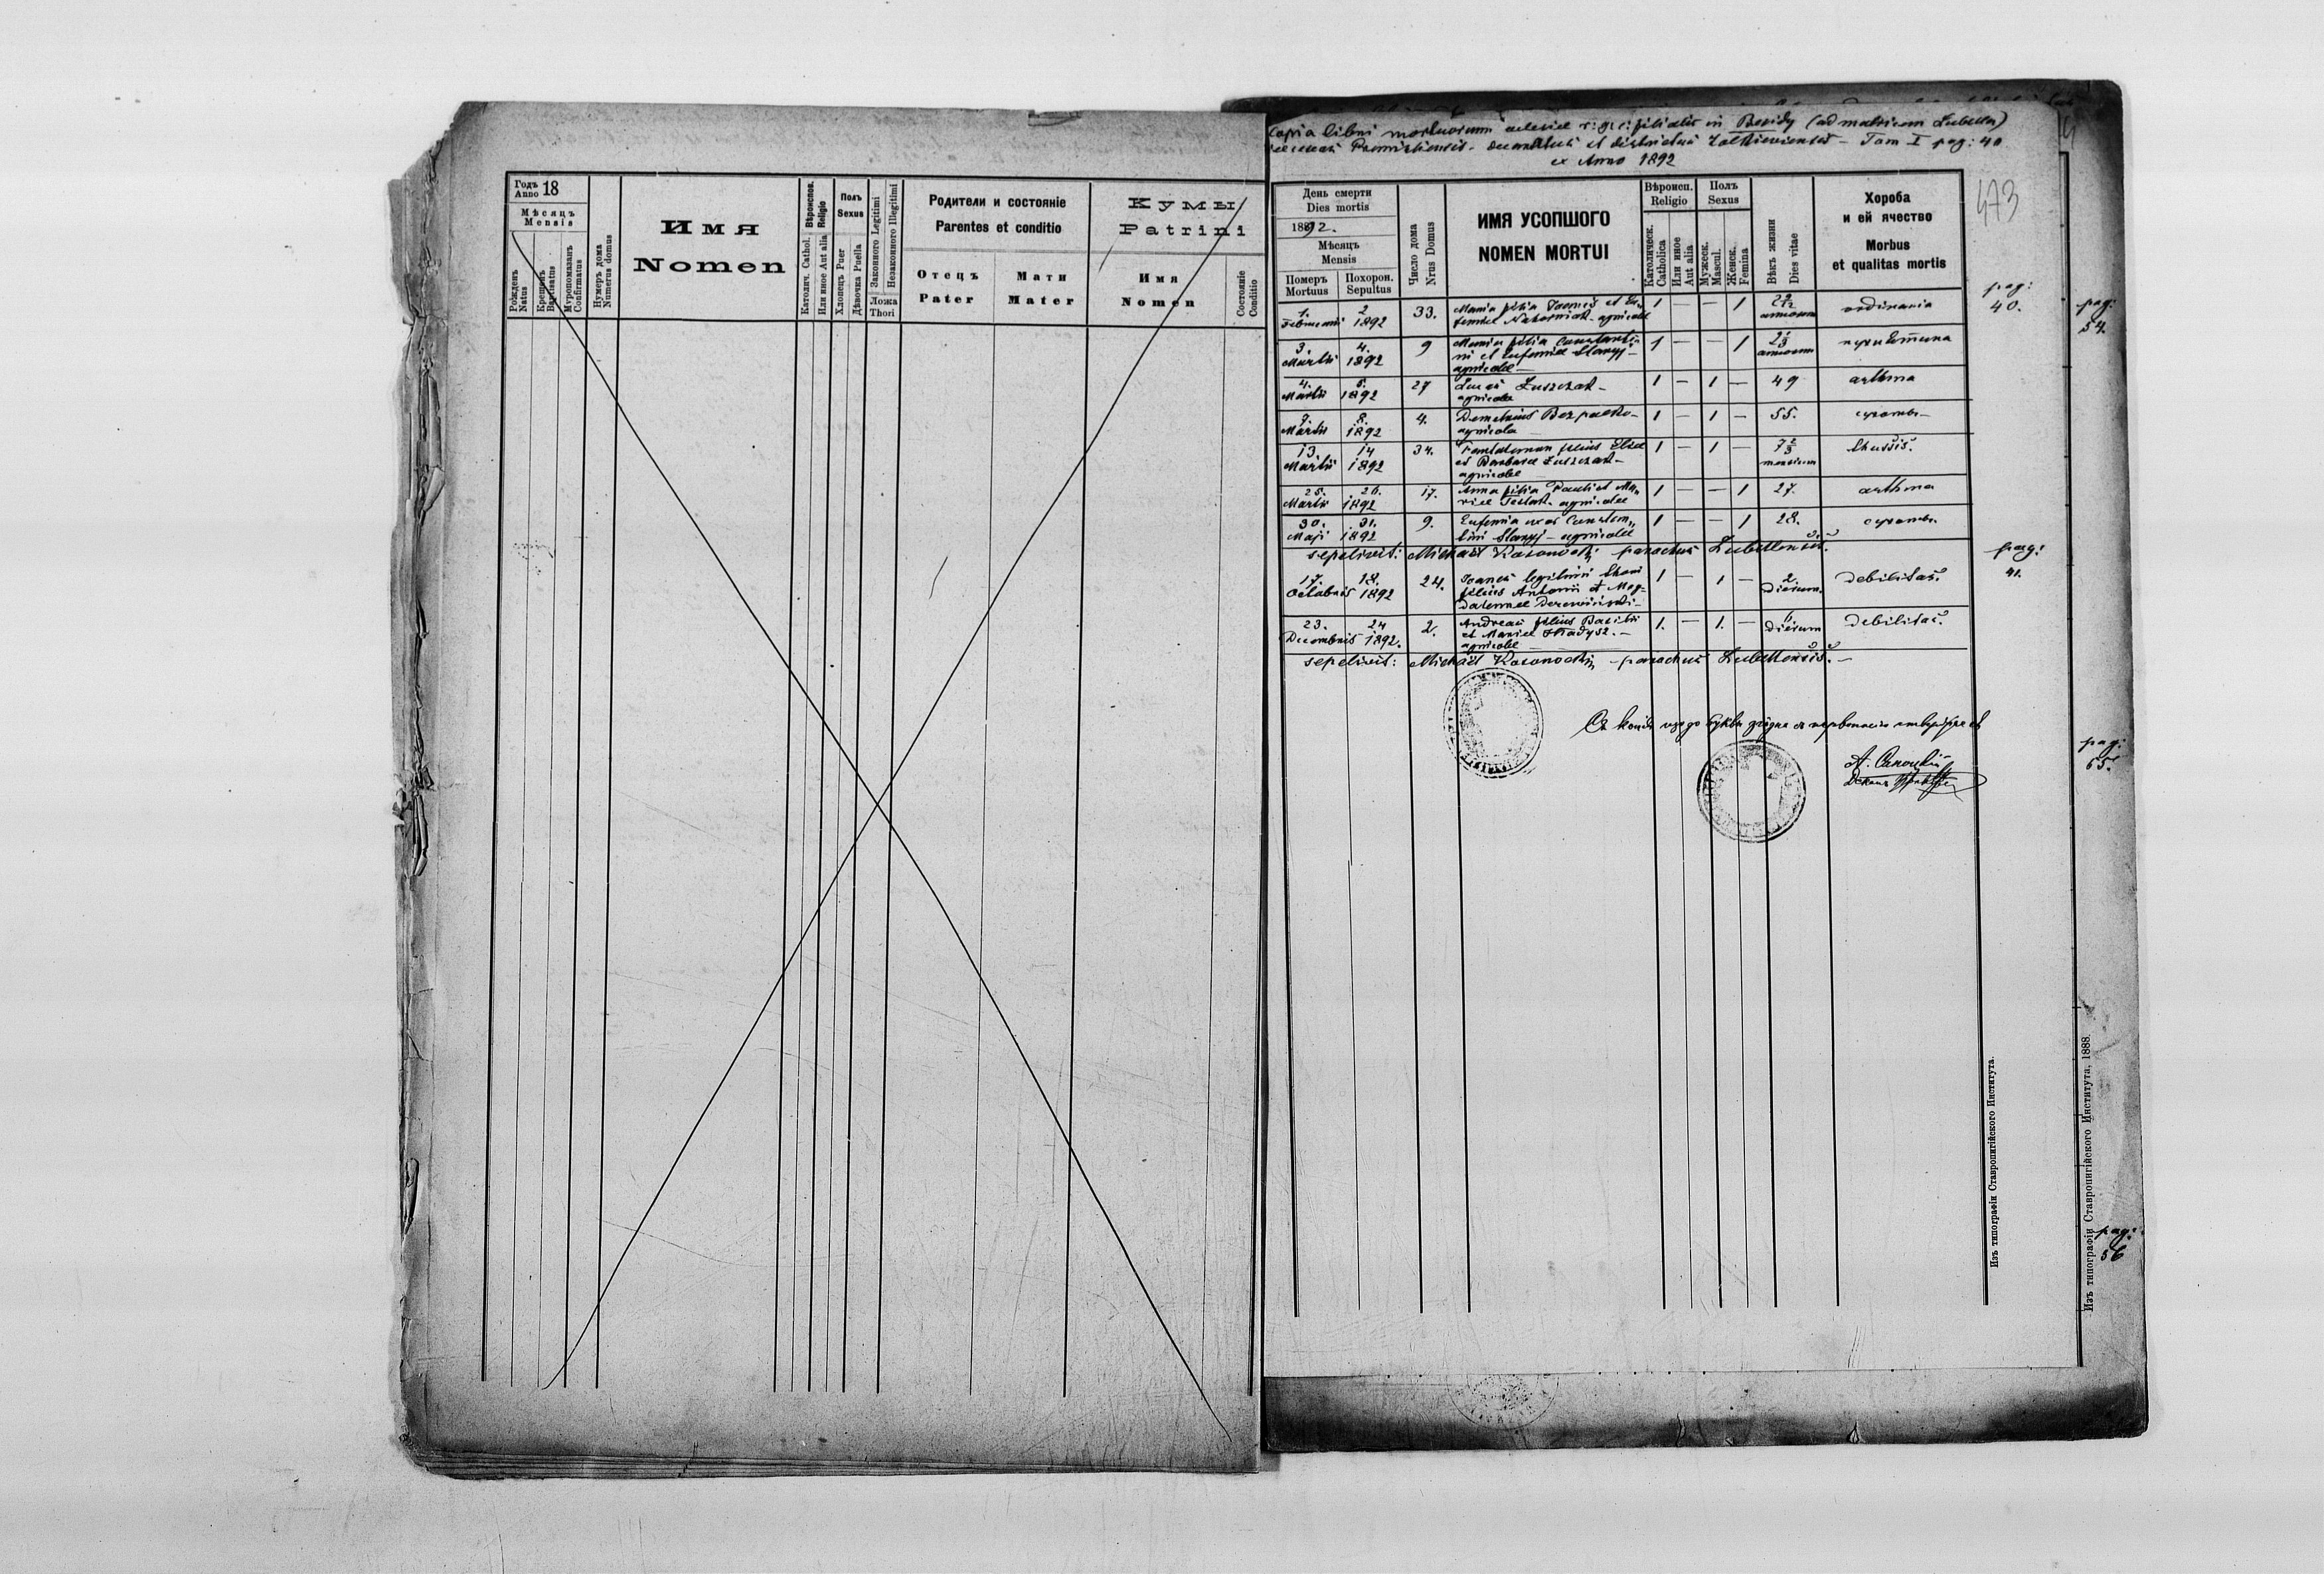 Годъ
Anno 18
Мѣсяцъ
Mensis
Рожденъ
Natus
Крещенъ
Baptisatus
Мѵропомазанъ
Confirmatus
Нумеръ дома
Numerus domus
Имя
Nomen
Вѣроиспов.
Religio
Католич. Cathol.
Или иное Aut alia
Полъ
Sexus
Хлопецъ Puer
Дѣвочка Puella
Законного Legitimi
Незаконного Illegitimi
Ложа
Thori
Родители и состояніе
Parentes et conditio
Отецъ
Pater
Мати
Mater
Кумы
Patrini
Имя
Nomen
Состояніе
Conditio
Copia libri mortuorum eclesiae r: gr: c: filialis in (ad matricem Lubella)
decanatus et districtus Zolkieviensis – Tom I pag: 40
ex Anno 1892
473
День смерти
Dies mortis
1892.
Мѣсяцъ
Mensis
Померъ
Mortuus
Похорон.
Sepultus
Число дома
Nrus Domus
ИМЯ УСОПШОГО
NOMEN MORTUI
Вѣроисп.
Religio
Католическ.
Catholica
Или иное
Aut alia
Полъ
Sexus
Мужеск.
Mascul.
Женск.
Femina
Вѣкъ жизни
Dies vitae
Хороба
и ей ячество
Morbus
et qualitas mortis
pag:
40.
pag:
54.
1. 2 33. Maria filia Joannis et Eu„ 1 — — 1 ordinaria
Februarii 1892 femiae agricolae annorum
3. 4. 9 Maria filia Constanti„ 1 — — 1
Martii 1892 ni et Eufemiae Slaryj – annorum
agricolae
4. 5. 27 Lucas Luszczak – 1 — 1 — 49 asthma
Martii 1892 agricola
7. 8. 4. Demetrius Bezpalko – 1 — 1 — 55. сухоты –
Martii 1892 agricola
13. 14 34. Pantaleimon filius Eliae 1 — 1 — thussis.
Martii 1892 et Barbarae Luszczak – mensium
agricolae
25. 26. 17. Anna filia Pauli et Ma„ 1 — — 1 27. asthma
Martii 1892 riae agricolae
30. 31. 9. Eufemia uxor Constan„ 1 — — 1 28. сухоты.
Maji 1892 tini Slaryj – agricolae
sepelivit: Michaël Kosonocki parochus Lubellensis.
pag:
41.
17. 18. 24. Joannes legitimi thori 1 — 1 — 2. debilitas.
Octobris 1892 filius Antonii et Mag- dierum.
dalenae
23. 24 2. Andreas filius Basilii 1. — 1. — 6. debilitas.
Decembris 1892. et Mariae – dierum
agricolae
sepelivit: Michaël Kosonocki – parochus Lubellensis. –
pag:
65.
pag:
56
Изъ типографіи Ставропигійского Института.
Изъ типографіи Ставропигійского Института, 1888.